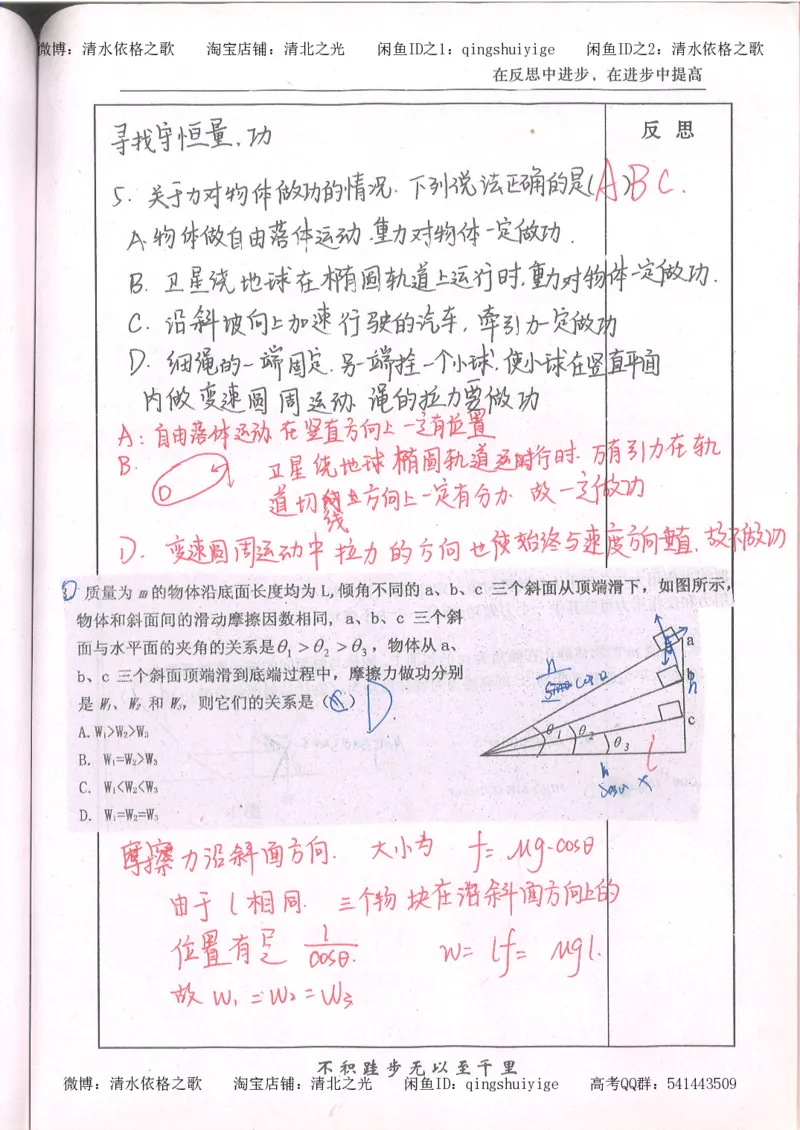 微博：清水依格之歌 淘宝店铺：清北之光 闲鱼ID之1：qingshuiyige 闲鱼ID之2：清水依格之歌
在反思中进步，在进步中提高
反 思
寻找守恒量、功
5. 关于力对物体做功的情况．下列说法正确的是(A)BC.
A. 物体做自由落体运动．重力对物体一定做功．
B. 卫星绕地球在椭圆轨道上运行时，重力对物体一定做功．
C. 沿斜坡向上加速行驶的汽车，牵引力一定做功
D. 细绳的一端固定．另一端拴一个小球，使小球在竖直平面
内做变速圆周运动 绳的拉力要做功
A：自由落体运动 在竖直方向上一定有位置
B. 卫星绕地球椭圆轨道运行时．万有引力在轨
道切线方向上一定有分力．故一定做功
D. 变速圆周运动中 拉力的方向也使始终与速度方向垂直．故不做功
质量为 m 的物体沿底面长度均为 L,倾角不同的 a、b、c 三个斜面从顶端滑下，如图所示，
物体和斜面间的滑动摩擦因数相同，a、b、c 三个斜
面与水平面的夹角的关系是θ₁＞θ₂＞θ₃，物体从 a、
b、c 三个斜面顶端滑到底端过程中，摩擦力做功分别
是 W₁、W₂ 和 W₃，则它们的关系是（ ）D
A.W₁>W₂>W₃
B. W₁=W₂>W₃
C. W₁<W₂<W₃
D. W₁=W₂=W₃
a
b
c
h
θ₁ θ₂ θ₃
l
摩擦力沿斜面方向． 大小为 f= μg·cosθ
由于 l 相同． 三个物块在沿斜面方向上的
位置有 l/cosθ. w= lf= μgl.
故 W₁=W₂=W₃
不积跬步无以至千里
微博：清水依格之歌 淘宝店铺：清北之光 闲鱼ID：qingshuiyige 高考QQ群：541443509